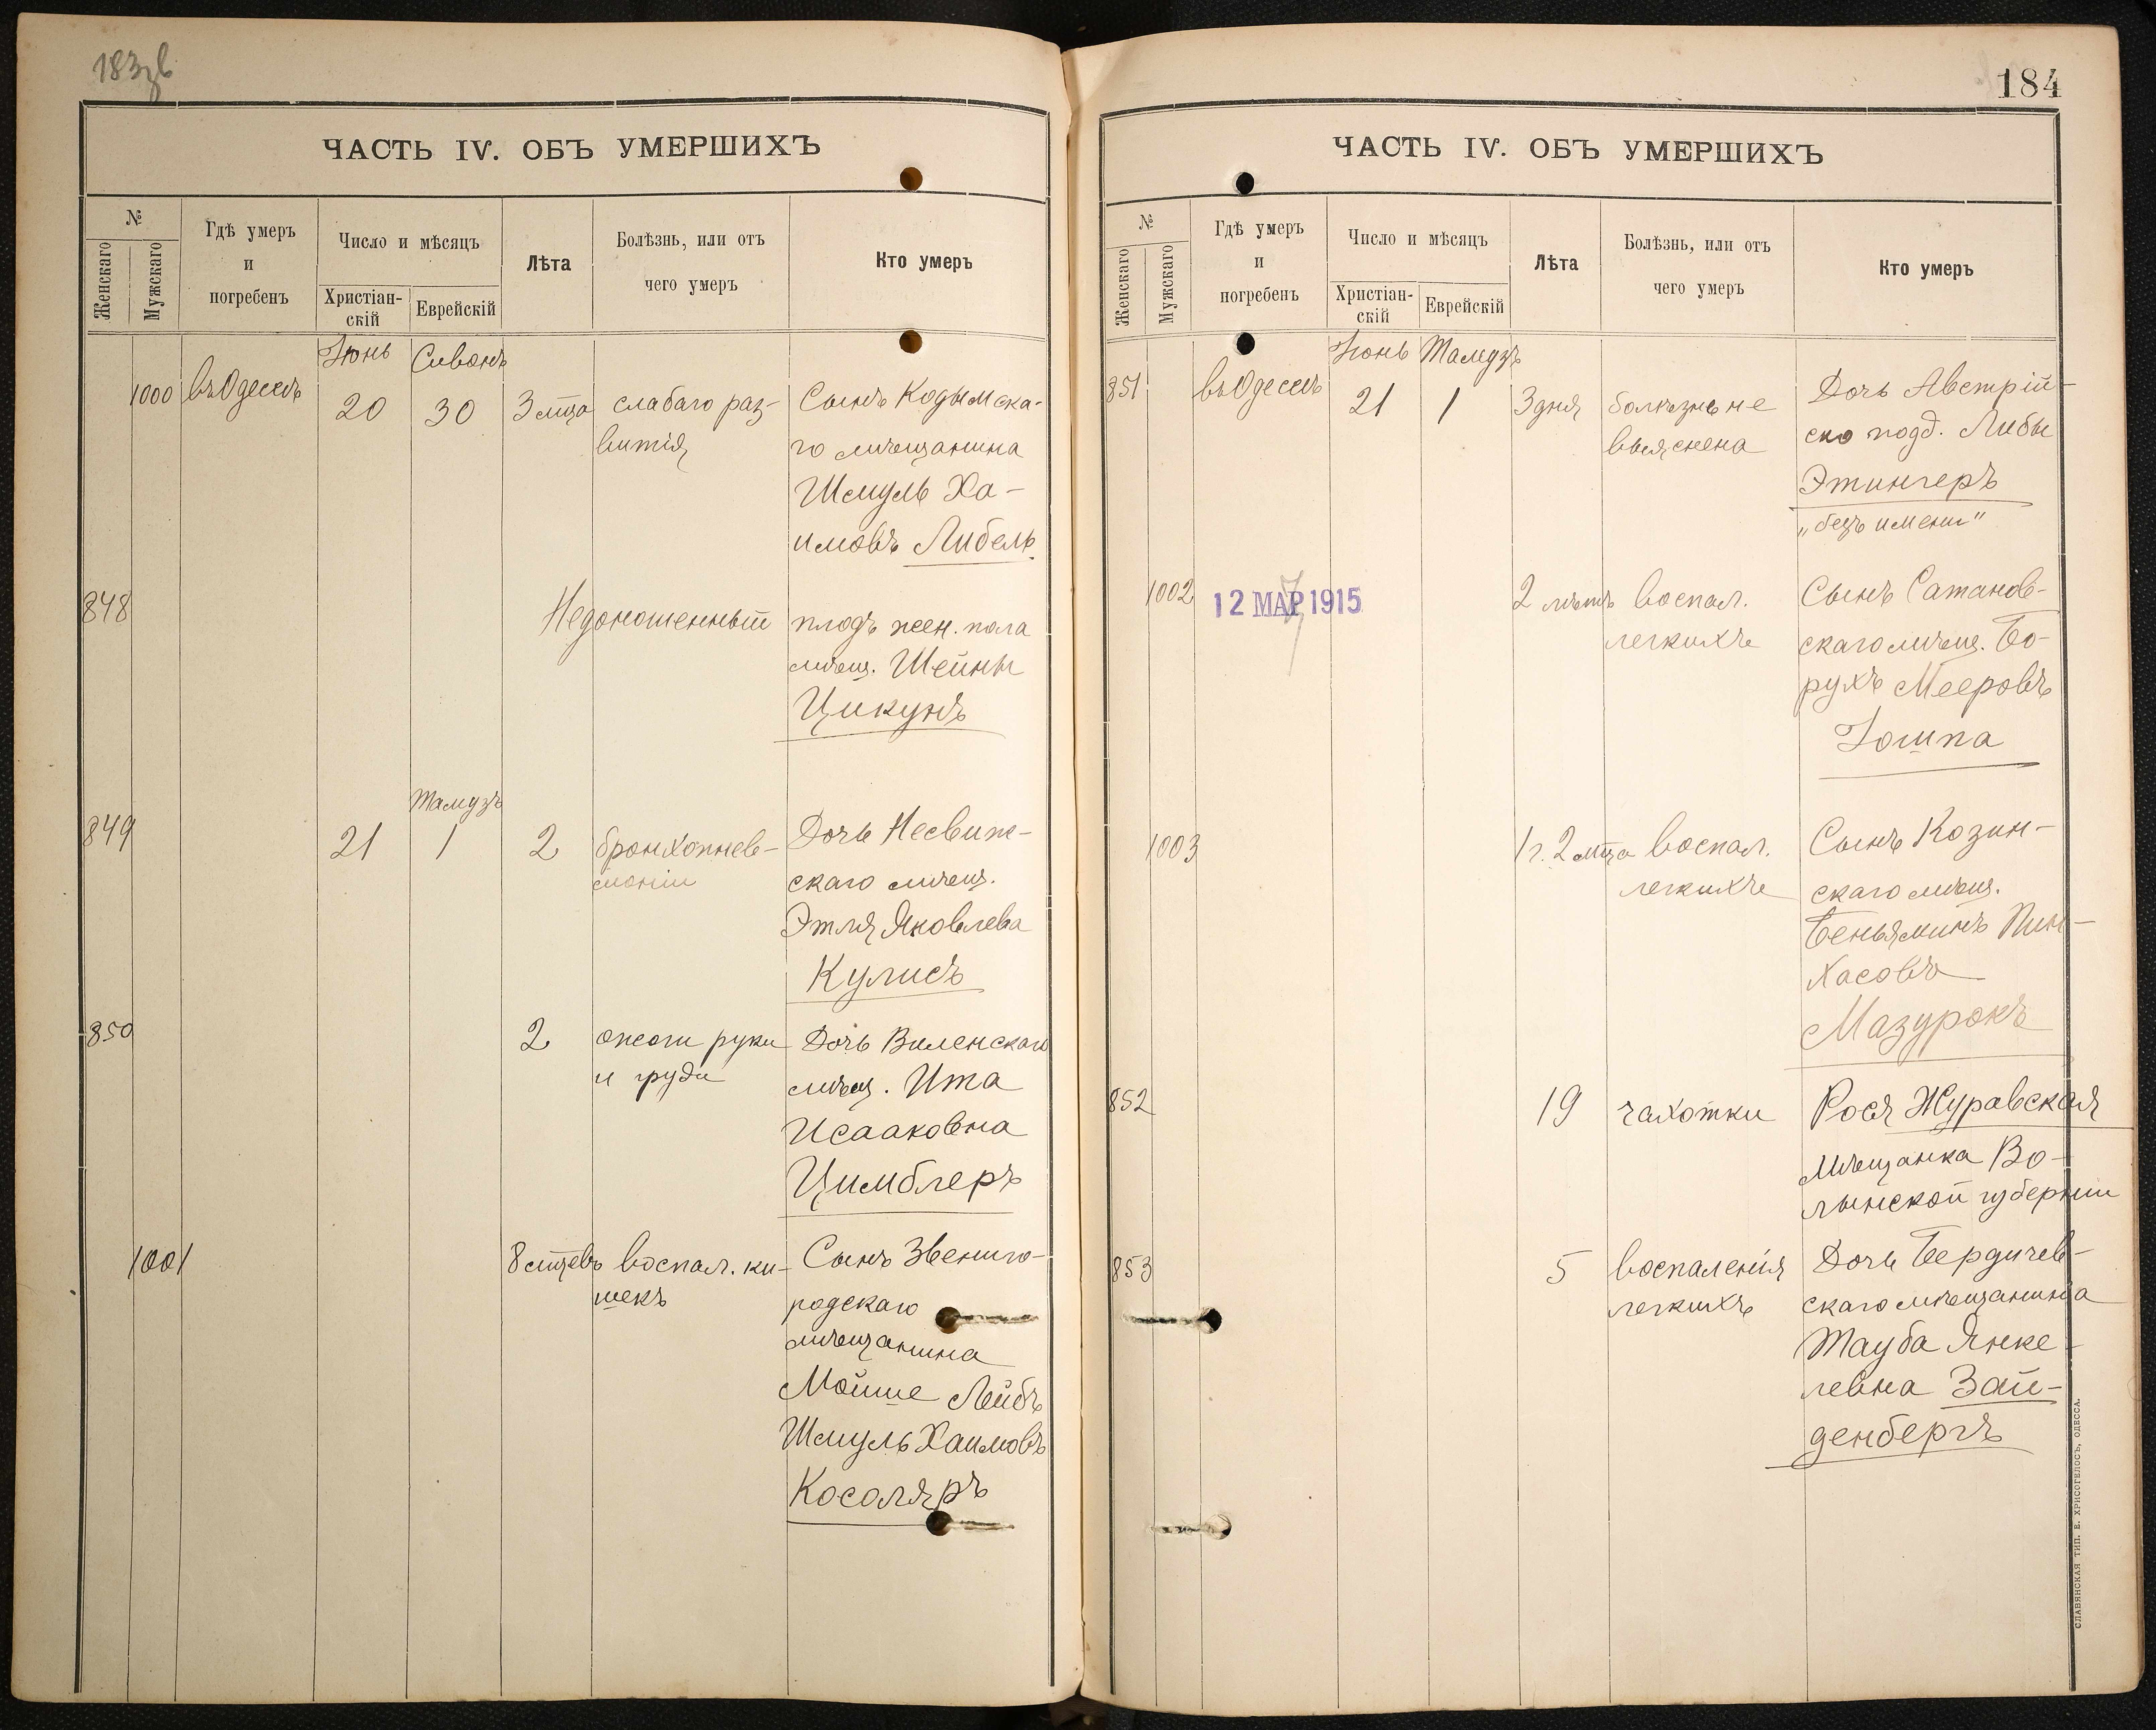 183об
ЧАСТЬ IV. ОБЪ УМЕРШИХЪ
№
Женскаго
Мужскаго
Гдѣ умеръ
и
погребенъ
Число и мѣсяцъ
Христіан-
скій
Еврейскій
Лѣта
Болѣзнь, или отъ
чего умеръ
Кто умеръ
Іюнь Сиванъ
1000 въ Одессѣ 20 30 3 м-ца слабаго раз- Сынъ Кодымска-
витія го мѣщанина
Шмуль Ха-
имовъ Либель
848 Недоношенный плодъ жен. пола
мѣщ. Шейны
Цикунъ
Тамузъ
849 21 1 2 бронхопнев- Дочь Несвиж-
моніи скаго мѣщ.
Этля Яковлева
Кулисъ
850 2 ожоги руки Дочь Виленскаго
и груди мѣщ. Ита
Исааковна
Цимблеръ
1001 8 м-цевъ воспал. ки- Сынъ Звениго-
шекъ родскаго
мѣщанина
Мойше Лейбъ
Шмуль Хаимовъ
Косоляръ
184
ЧАСТЬ IV. ОБЪ УМЕРШИХЪ
№
Женскаго
Мужскаго
Гдѣ умеръ
и
погребенъ
Число и мѣсяцъ
Христіан-
скій
Еврейскій
Лѣта
Болѣзнь, или отъ
чего умеръ
Кто умеръ
Іюнь Тамузъ
851 въ Одессѣ 21 1 3 дня болѣзнь не Дочь Австрій-
выяснена ско подд. Либы
Этингеръ
„безъ имени"
1002 12 МАР 1915 2 лѣтъ воспал. Сынъ Сатанов-
легкихъ скаго мѣщ. Бо-
рухъ Мееровъ
Іошпа
1003 1 г. 2 м-ца воспал. Сынъ Козин-
легкихъ скаго мѣщ.
Беньяминъ Пин-
хасовъ
Мазурокъ
852 19 чахотки Рося Журавская
Мѣщанка Во-
лынской губерніи
853 5 воспаленія Дочь Бердичев-
легкихъ скаго мѣщанина
Тауба Янке-
левна Зай-
денбергъ
СЛАВЯНСКАЯ ТИП. Е. ХРИСОГЕЛОСЪ, ОДЕССА.